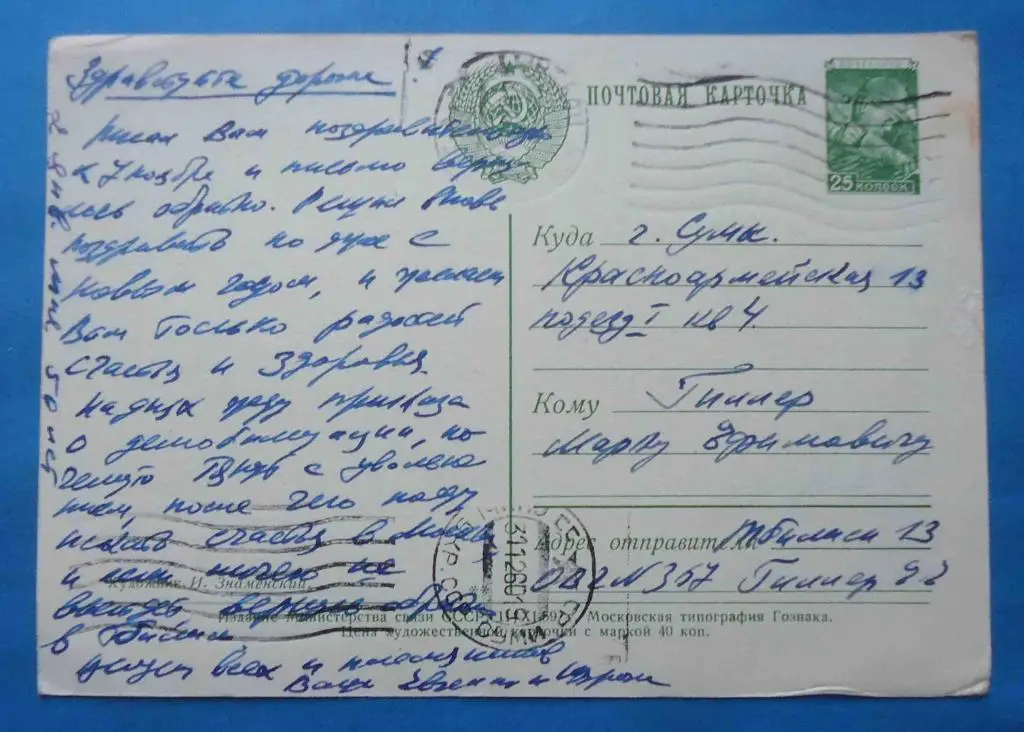 Здравствуйте дорогие
Писал Вам поздравительную
к 7 ноября и письмо верну
лось обратно. Решил снова
поздравить по душе с
Новым годом, и желаем
Вам только радостей
счастья и здоровья.
На днях жду приказа
о демобилизации, по
чему-то тянут с увольне
нием, после чего поеду
искать счастье в
и если ничего не
выйдет вернусь обратно
в Тбилиси
Целуем всех и
Ваши Евгений и
мне 50 лет
ПОЧТОВАЯ КАРТОЧКА
25 КОПЕЕК
Куда г. Сумы.
Красноармейская 13
подезд I кв 4.
Кому Гиллер
Марку Ефимовичу
Адрес отправителя Тбилиси 13
Гиллер
Художник И. Знаменский.
Издание Министерства связи СССР. Московская типография Гознака.
Цена художественной карточки с маркой 40 коп.
СУМЫ
УКР. ССР